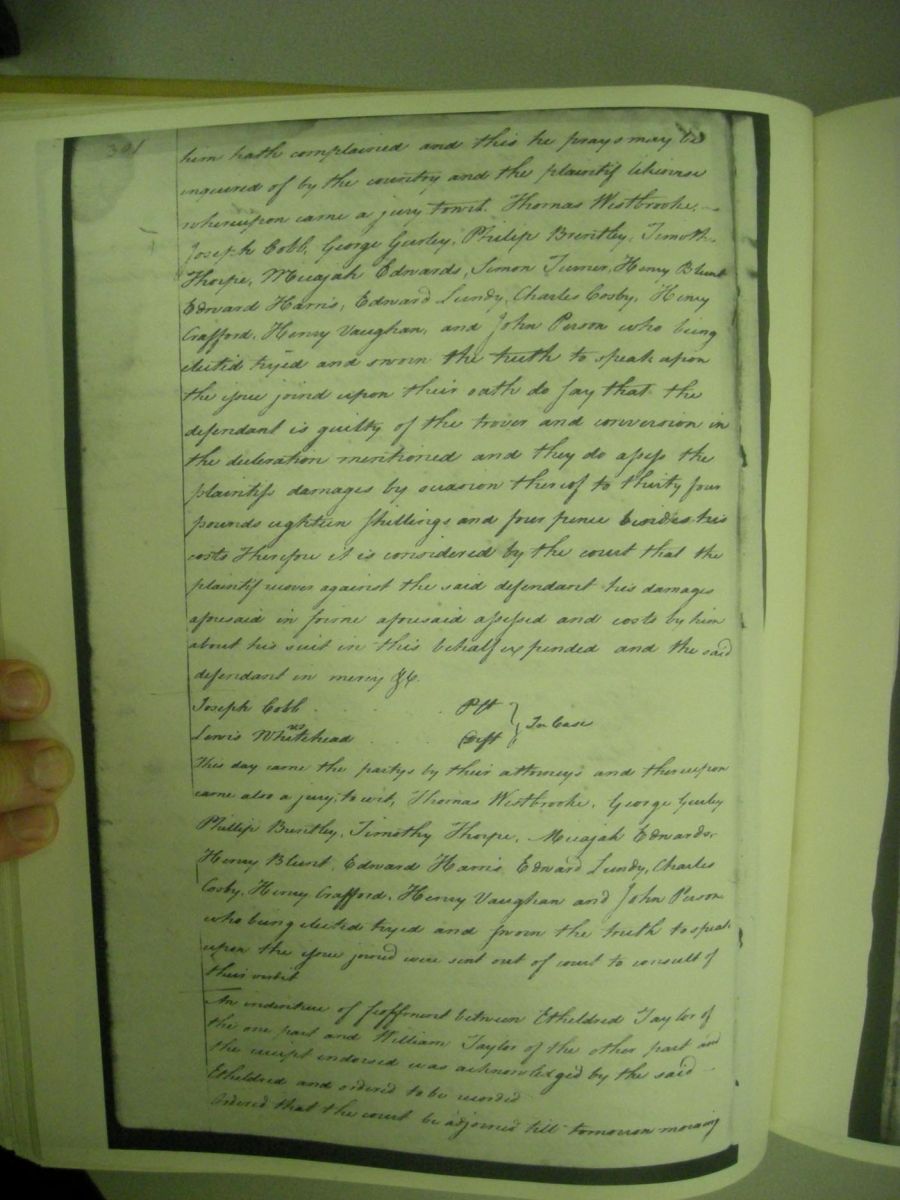 301
him hath complained and this he prays may be
inquired of by the country and the plaintif likewise
whereupon came a jury towit. Thomas Westbrooke,
Joseph Cobb, George Gurley, Philip Brentley, Timothy
Thorpe, Micajah Edwards, Simon Turner, Henry Blunt
Edward Harris, Edward Lundy, Charles Cosby, Henry
Crafford, Henry Vaughan, and John Person who being
elected tryed and sworn the truth to speak upon
the issue joind upon their oath do say that the
defendant is guilty of the trover and conversion in
the decleration mentioned and they do assess the
plaintifs damages by ocasion thereof to thirty four
pounds eighteen shillings and four pence besides his
costs Therefore it is considered by the court that the
plaintif recover against the said defendant his damages
aforesaid in forme aforesaid assessed and costs by him
about his suit in this behalf expended and the said
defendant in mercy &c.
Joseph Cobb Plt
vs In Case
Lewis Whitehead Deft
This day came the partys by their attorneys and thereupon
came also a jury, to wit, Thomas Westbrooke, George Gurley
Phillip Brentley, Timothy Thorpe, Micajah Edwards,
Henry Blunt, Edward Harris, Edward Lundy, Charles
Cosby, Henry Crafford, Henry Vaughan and John Person
who being elected tryed and sworn the truth to speak
upon the issue joined were sent out of court to consult of
their verdit
An indenture of feoffment between Etheldred Taylor of
the one part and William Taylor of the other part and
the receipt endorsed was acknowledged by the said
Etheldred and ordered to be recorded
Ordered that the court be adjorned till tomorrow morning